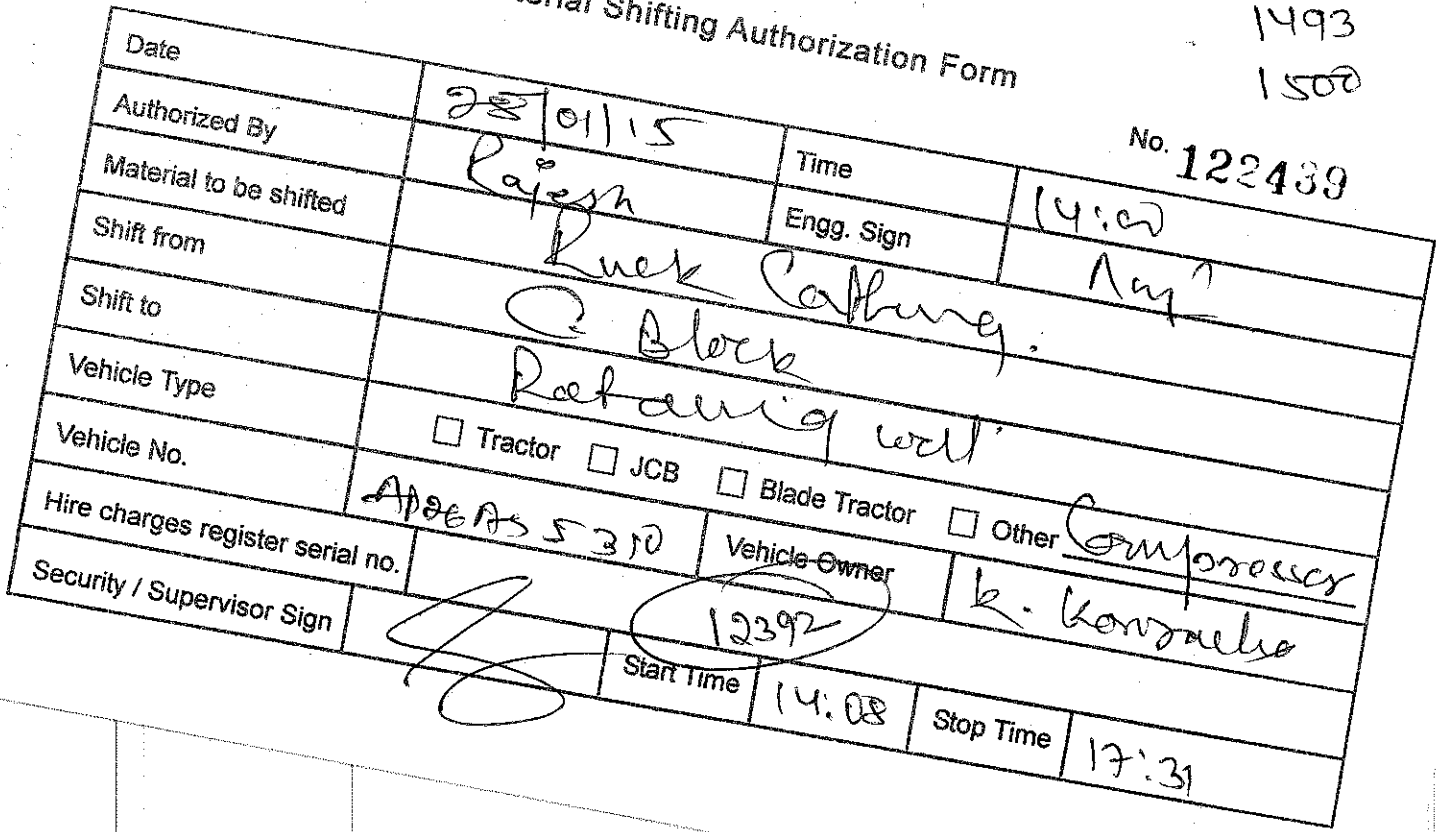 Shifting Authorization Form
1493
1500
No. 122439
Date 28/01/15 Time 14:00
Authorized By Rajesh Engg. Sign
Material to be shifted
Shift from C Block
Shift to
Vehicle Type ☐ Tractor ☐ JCB ☐ Blade Tractor ☐ Other Compressor
Vehicle No. Vehicle Owner K.
Hire charges register serial no. 12392
Security / Supervisor Sign Start Time 14:08 Stop Time 17:31